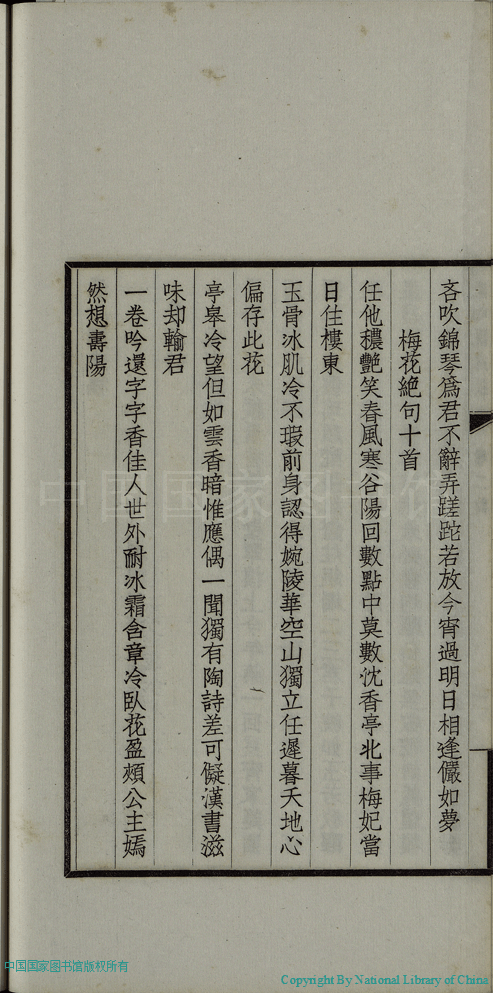 吝吹錦琴爲君不辭弄蹉跎若放今宵過明日相逢儼如夢
梅花絶句十首
任他穠艷笑春風寒谷陽回數點中莫數沈香亭北事梅妃當
日住樓東
玉骨冰肌冷不瑕前身認得婉陵華空山獨立任遲暮天地心
偏存此花
亭皋冷望但如雲香暗惟應偶一聞獨有陶詩差可儗漢書滋
味却輸君
一卷吟還字字香佳人世外耐冰霜含章冷臥花盈頰公主嫣
然想壽陽
中国国家图书馆
中国国家图书馆版权所有
Copyright By National Library of China